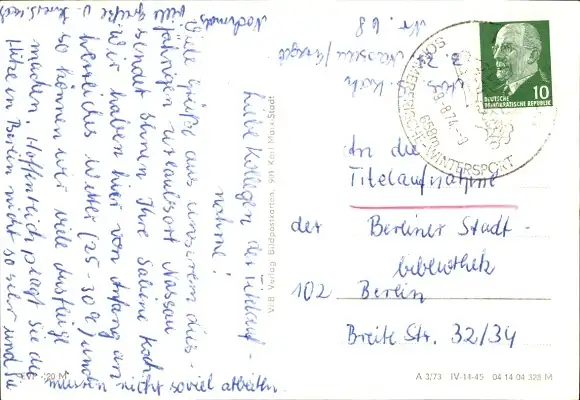 Liebe Kollegen der Titelauf-
nahme!
Viele Grüße aus unserem dies-
jährigen Urlaubsort Nassau
sendet Ihnen Ihre Sabine Koch.
Wir haben hier von Anfang an
herrliches Wetter (25-30°) und
so können wir viele Ausflüge
machen. Hoffentlich plagt Sie die
Hitze in Berlin nicht so sehr und Sie
müssen nicht soviel arbeiten.
Nochmals
viele Grüße u.
VEB Verlag Bildpostkarten, 901 Karl-Marx-Stadt
Koch
Nassau/Erzgeb
Nr. 68
DEUTSCHE
DEMOKRATISCHE REPUBLIK
10
-8.74-
WINTERSPORT
An die
Titelaufnahme
der Berliner Stadt-
bibliothek
102 Berlin
Breite Str. 32/34
A 3/73 IV-14-45 04 14 04 328 M